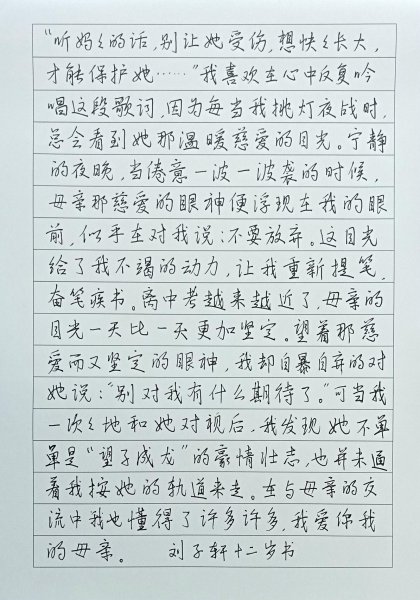 “听妈々的话，别让她受伤，想快々长大，
才能保护她……”我喜欢在心中反复吟
唱这段歌词，因为每当我挑灯夜战时，
总会看到她那温暖慈爱的目光。宁静
的夜晚，当倦意一波一波袭的时候，
母亲那慈爱的眼神便浮现在我的眼
前，似乎在对我说：不要放弃。这目光
给了我不竭的动力，让我重新提笔，
奋笔疾书。离中考越来越近了，母亲的
目光一天比一天更加坚定。望着那慈
爱而又坚定的眼神，我却自暴自弃的对
她说：“别对我有什么期待了。”可当我
一次々地和她对视后，我发现她不单
单是“望子成龙”的豪情壮志，也并未逼
着我按她的轨道来走。在与母亲的交
流中我也懂得了许多许多，我爱你我
的母亲。 刘子轩十二岁书